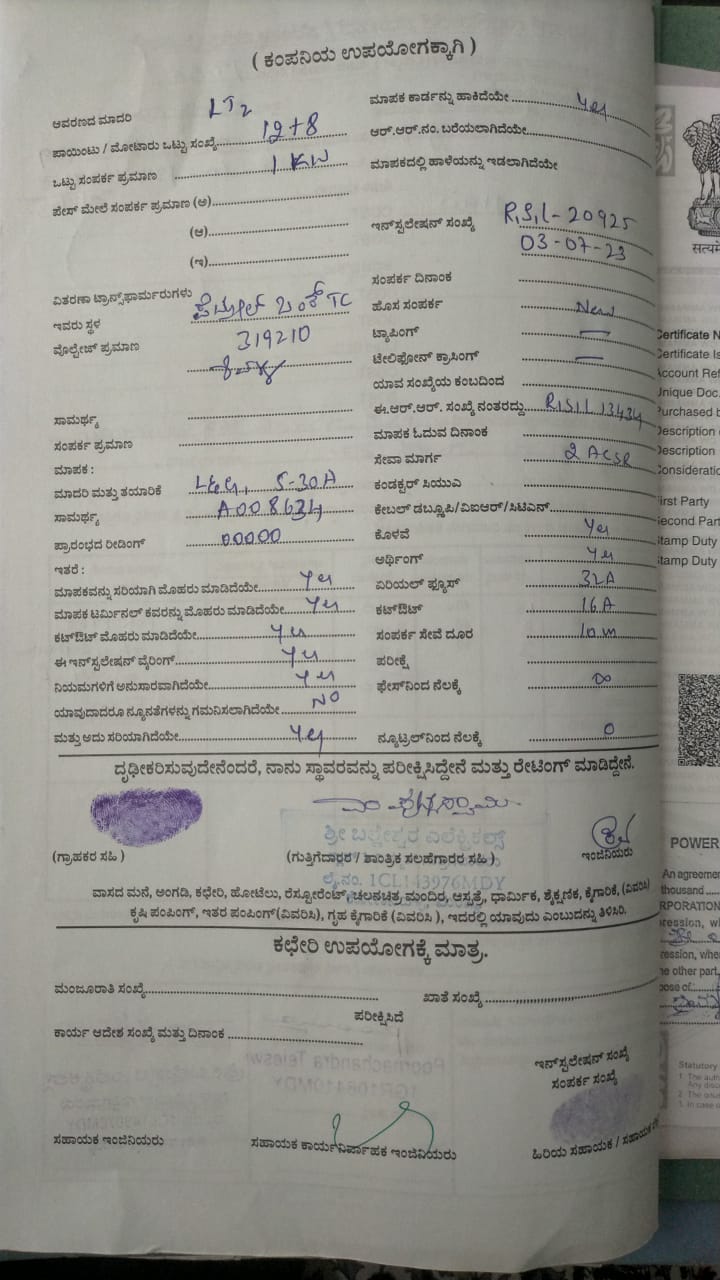 ( ಕಂಪನಿಯ ಉಪಯೋಗಕ್ಕಾಗಿ )
ಆವರಣದ ಮಾದರಿ LT2
ಪಾಯಿಂಟು / ಮೋಟಾರು ಒಟ್ಟು ಸಂಖ್ಯೆ 12+8
ಒಟ್ಟು ಸಂಪರ್ಕ ಪ್ರಮಾಣ 1 KW
ಫೇಸ್ ಮೇಲೆ ಸಂಪರ್ಕ ಪ್ರಮಾಣ (ಅ)
(ಆ)
(ಇ)
ವಿತರಣಾ ಟ್ರಾನ್ಸ್‌ಫಾರ್ಮರುಗಳು
ಇವರು ಸ್ಥಳ ಪೆಟ್ರೋಲ್ ಬಂಕ್ TC
ವೋಲ್ಟೇಜ್ ಪ್ರಮಾಣ 319210
ಸಾಮರ್ಥ್ಯ
ಸಂಪರ್ಕ ಪ್ರಮಾಣ
ಮಾಪಕ :
ಮಾದರಿ ಮತ್ತು ತಯಾರಿಕೆ L&G, 5-30A
ಸಾಮರ್ಥ್ಯ
ಪ್ರಾರಂಭದ ರೀಡಿಂಗ್ 00000
ಇತರೆ :
ಮಾಪಕವನ್ನು ಸರಿಯಾಗಿ ಮೊಹರು ಮಾಡಿದೆಯೇ Yes
ಮಾಪಕ ಟರ್ಮಿನಲ್ ಕವರನ್ನು ಮೊಹರು ಮಾಡಿದೆಯೇ Yes
ಕಟ್‌ಔಟ್ ಮೊಹರು ಮಾಡಿದೆಯೇ Yes
ಈ ಇನ್‌ಸ್ಟಲೇಷನ್ ವೈರಿಂಗ್ Yes
ನಿಯಮಗಳಿಗೆ ಅನುಸಾರವಾಗಿದೆಯೇ Yes
ಯಾವುದಾದರೂ ನ್ಯೂನತೆಗಳನ್ನು ಗಮನಿಸಲಾಗಿದೆಯೇ NO
ಮತ್ತು ಅದು ಸರಿಯಾಗಿದೆಯೇ Yes
ಮಾಪಕ ಕಾರ್ಡನ್ನು ಹಾಕಿದೆಯೇ Yes
ಆರ್.ಆರ್.ನಂ. ಬರೆಯಲಾಗಿದೆಯೇ
ಮಾಪಕದಲ್ಲಿ ಹಾಳೆಯನ್ನು ಇಡಲಾಗಿದೆಯೇ
ಇನ್‌ಸ್ಟಲೇಷನ್ ಸಂಖ್ಯೆ RSIL-20925
03-07-23
ಸಂಪರ್ಕ ದಿನಾಂಕ
ಹೊಸ ಸಂಪರ್ಕ New
ಟ್ಯಾಪಿಂಗ್ —
ಟೇಲಿಫೋನ್ ಕ್ರಾಸಿಂಗ್ —
ಯಾವ ಸಂಖ್ಯೆಯ ಕಂಬದಿಂದ
ಈ.ಆರ್.ಆರ್. ಸಂಖ್ಯೆ ನಂತರದ್ದು RISIL 13434
ಮಾಪಕ ಓದುವ ದಿನಾಂಕ
ಸೇವಾ ಮಾರ್ಗ 2 ACSR
ಕಂಡಕ್ಟರ್ ಸಿಯುವಿ
ಕೇಬಲ್ ಡಬ್ಲೂಪಿ/ವಿಐಆರ್/ಸಿಟಿಎಸ್
ಕೊಳವೆ Yes
ಅರ್ಥಿಂಗ್ Yes
ಏರಿಯಲ್ ಫ್ಯೂಸ್ 32A
ಕಟ್‌ಔಟ್ 16A
ಸಂಪರ್ಕ ಸೇವೆ ದೂರ 10 m
ಪರೀಕ್ಷೆ
ಫೇಸ್‌ನಿಂದ ನೆಲಕ್ಕೆ ∞
ನ್ಯೂಟ್ರಲ್‌ನಿಂದ ನೆಲಕ್ಕೆ 0
ದೃಢೀಕರಿಸುವುದೇನೆಂದರೆ, ನಾನು ಸ್ಥಾವರವನ್ನು ಪರೀಕ್ಷಿಸಿದ್ದೇನೆ ಮತ್ತು ರೇಟಿಂಗ್ ಮಾಡಿದ್ದೇನೆ.
(ಗ್ರಾಹಕರ ಸಹಿ )
(ಗುತ್ತಿಗೆದಾರರ / ತಾಂತ್ರಿಕ ಸಲಹೆಗಾರರ ಸಹಿ )
ಇಂಜಿನಿಯರು
ವಾಸದ ಮನೆ, ಅಂಗಡಿ, ಕಛೇರಿ, ಹೋಟೆಲು, ರೆಸ್ಟೋರೆಂಟ್, ಚಲನಚಿತ್ರ ಮಂದಿರ, ಆಸ್ಪತ್ರೆ, ಧಾರ್ಮಿಕ, ಶೈಕ್ಷಣಿಕ, ಕೈಗಾರಿಕೆ, (ವಿವರಿಸಿ)
ಕೃಷಿ ಪಂಪಿಂಗ್, ಇತರ ಪಂಪಿಂಗ್(ವಿವರಿಸಿ), ಗೃಹ ಕೈಗಾರಿಕೆ (ವಿವರಿಸಿ ), ಇದರಲ್ಲಿ ಯಾವುದು ಎಂಬುದನ್ನು ತಿಳಿಸಿರಿ.
ಕಛೇರಿ ಉಪಯೋಗಕ್ಕೆ ಮಾತ್ರ.
ಮಂಜೂರಾತಿ ಸಂಖ್ಯೆ
ಖಾತೆ ಸಂಖ್ಯೆ
ಪರೀಕ್ಷಿಸಿದೆ
ಕಾರ್ಯ ಆದೇಶ ಸಂಖ್ಯೆ ಮತ್ತು ದಿನಾಂಕ
ಇನ್‌ಸ್ಟಲೇಷನ್ ಸಂಖ್ಯೆ
ಸಂಪರ್ಕ ಸಂಖ್ಯೆ
ಸಹಾಯಕ ಇಂಜಿನಿಯರು
ಸಹಾಯಕ ಕಾರ್ಯನಿರ್ವಾಹಕ ಇಂಜಿನಿಯರು
ಹಿರಿಯ ಸಹಾಯಕ / ಸಹಾಯಕ
Certificate
Certificate
Account
Unique Doc.
Purchased
Description
Description
First Party
Second
Stamp Duty
Stamp Duty
POWER
An agreement
thousand
Statutory